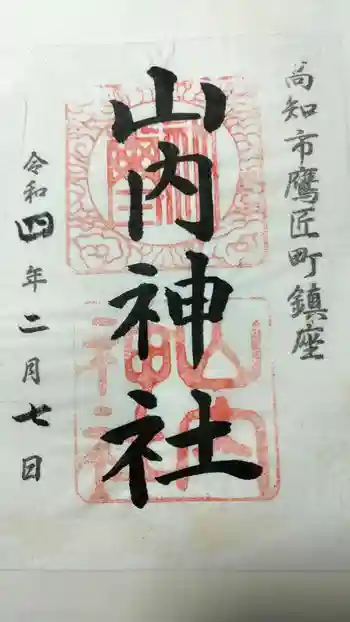 高知市鷹匠町鎮座
山内神社
令和四年二月七日
山内
神社